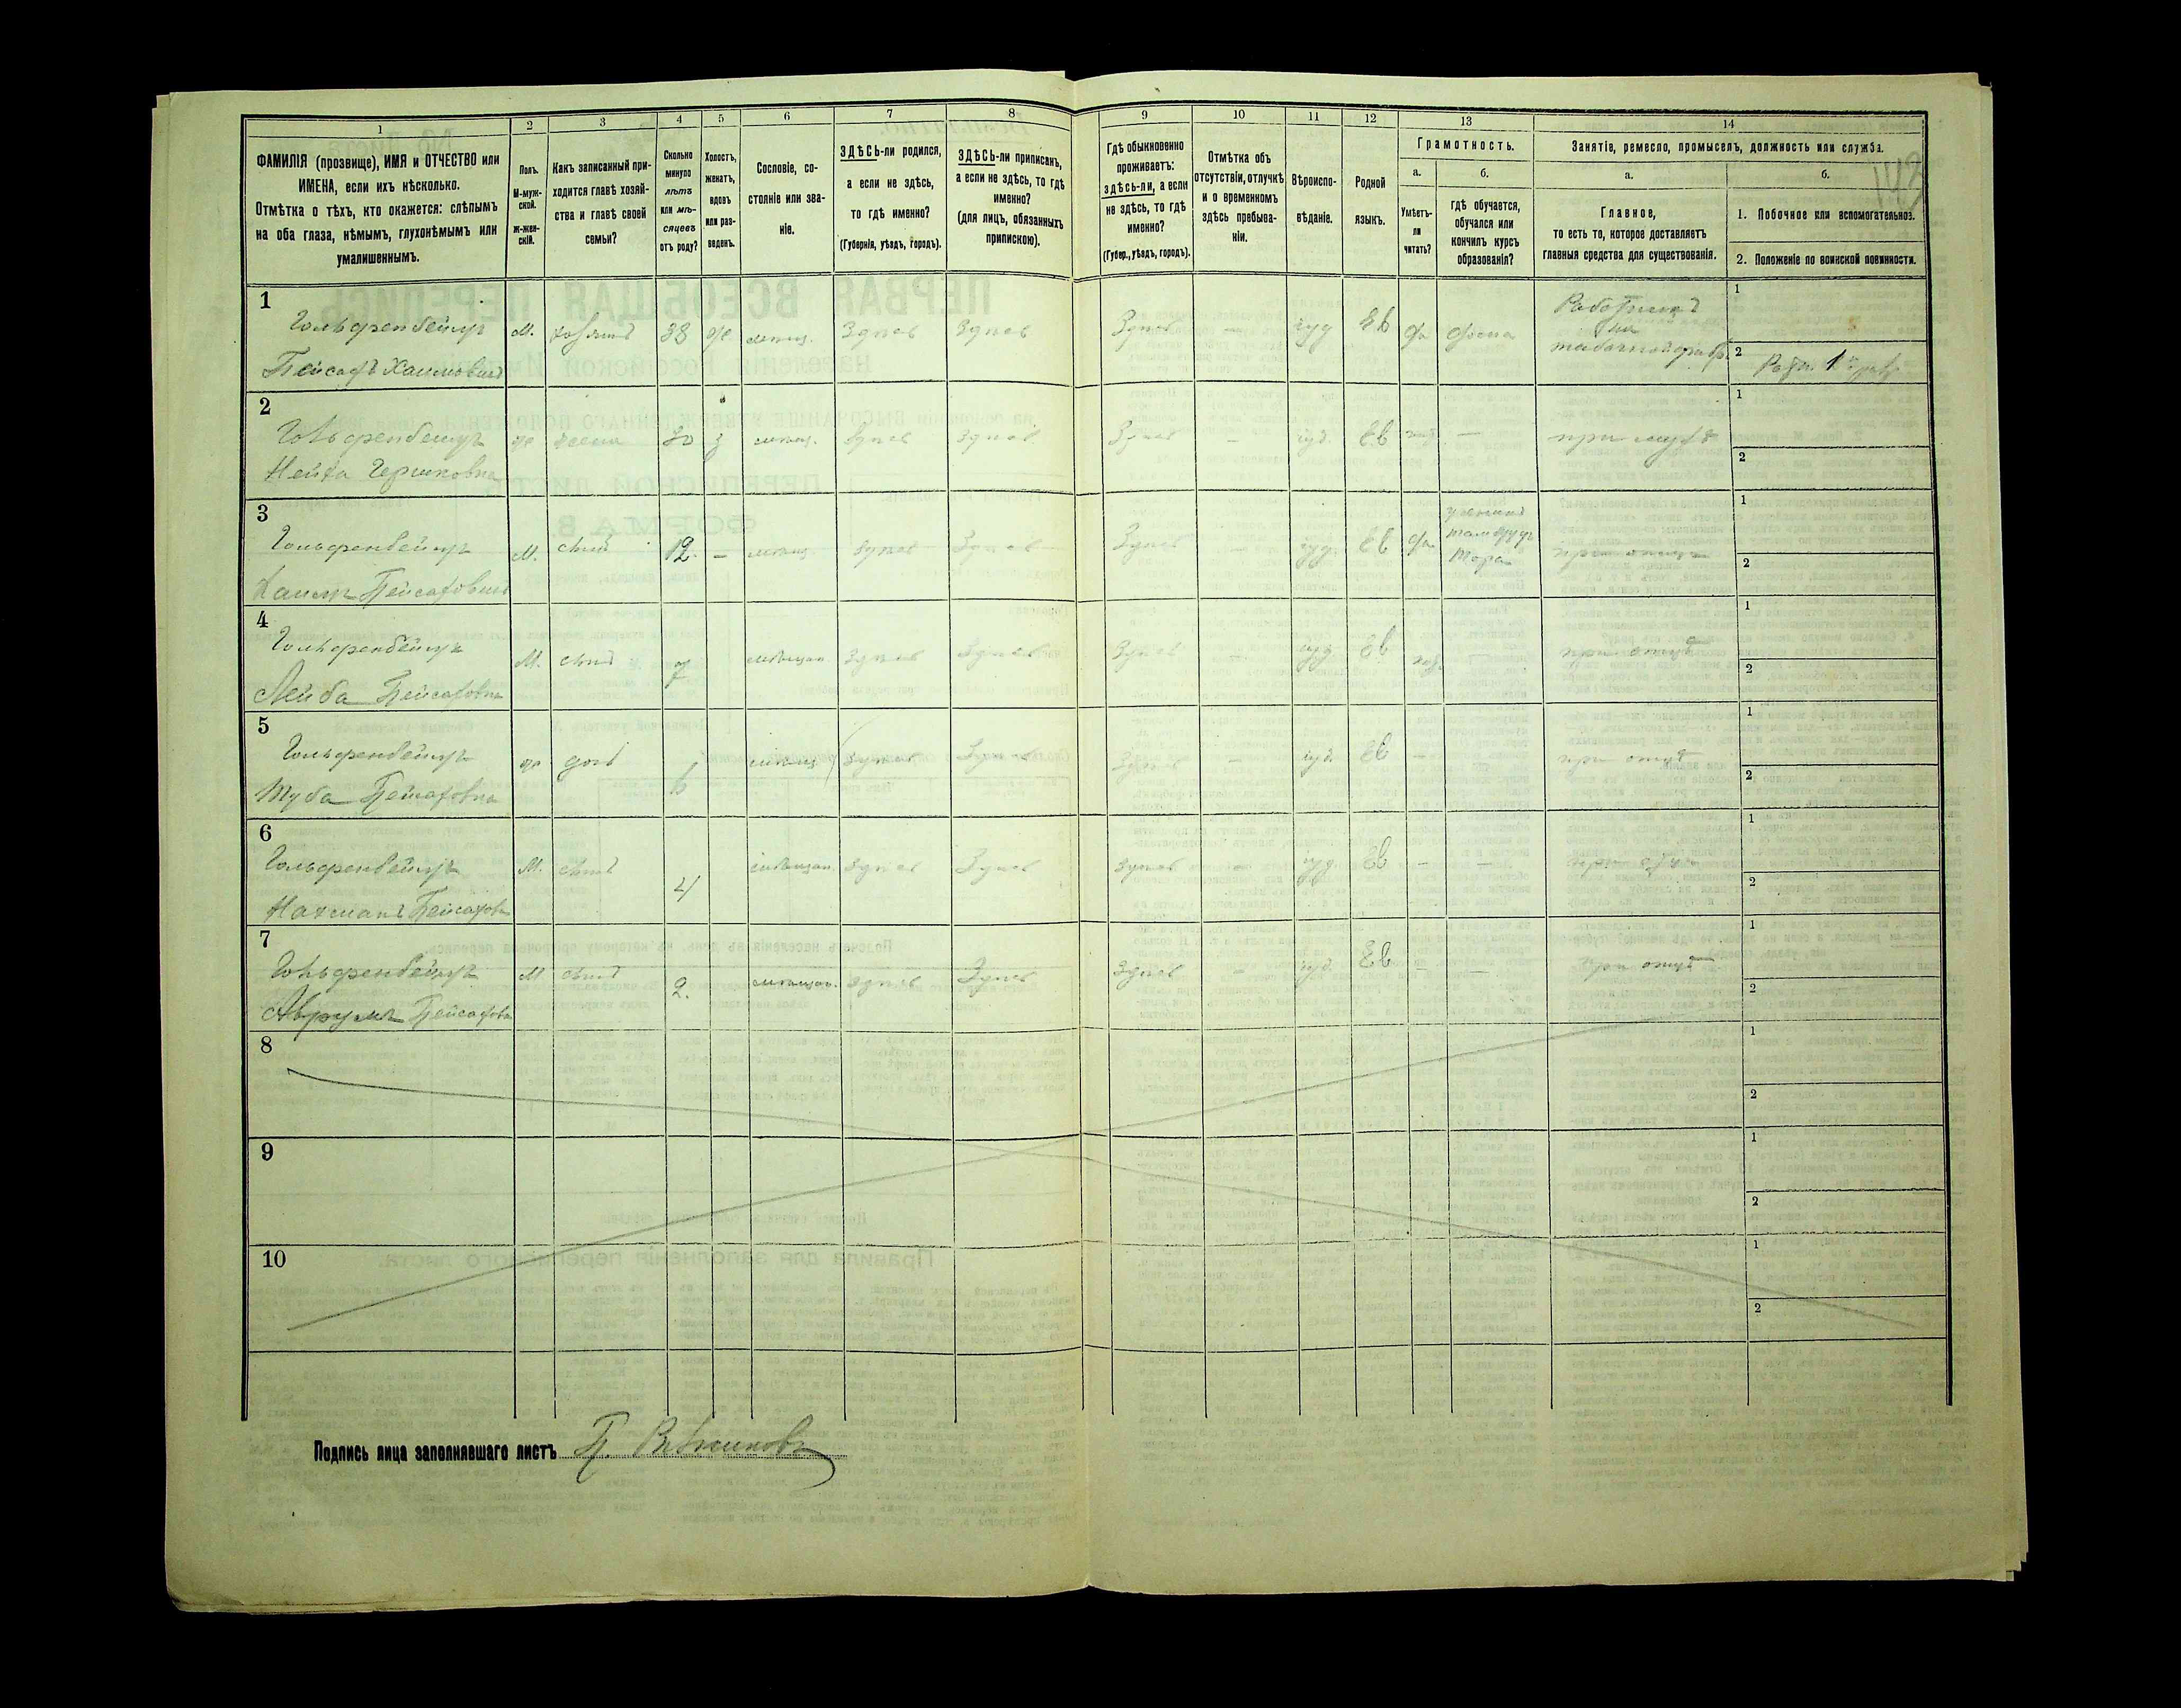 1
ФАМИЛІЯ (прозвище), ИМЯ и ОТЧЕСТВО или
ИМЕНА, если ихъ нѣсколько.
Отмѣтка о тѣхъ, кто окажется: слѣпымъ
на оба глаза, нѣмымъ, глухонѣмымъ или
умалишеннымъ.
2
Полъ.
М-муж-
ской.
Ж-жен-
скій.
3
Какъ записанный при-
ходится главѣ хозяй-
ства и главѣ своей
семьи?
4
Сколько
минуло
лѣтъ
или мѣ-
сяцевъ
отъ роду?
5
Холостъ,
женатъ,
вдовъ
или раз-
веденъ.
6
Сословіе, со-
стояніе или зва-
ніе.
7
ЗДѢСЬ-ли родился,
а если не здѣсь,
то гдѣ именно?
(Губернія, уѣздъ, городъ).
8
ЗДѢСЬ-ли приписанъ,
а если не здѣсь, то гдѣ
именно?
(для лицъ, обязанныхъ
припискою).
9
Гдѣ обыкновенно
проживаетъ:
здѣсь-ли, а если
не здѣсь, то гдѣ
именно?
(Губер., уѣздъ, городъ).
10
Отмѣтка объ
отсутствіи, отлучкѣ
и о временномъ
здѣсь пребыва-
ніи.
11
Вѣроиспо-
вѣданіе.
12
Родной
языкъ.
13
Грамотность.
а.
Умѣетъ-
ли
читать?
б.
гдѣ обучается,
обучался или
кончилъ курсъ
образованія?
14
Занятіе, ремесло, промыселъ, должность или служба.
а.
Главное,
то есть то, которое доставляетъ
главныя средства для существованія.
б.
1. Побочное или вспомогательное.
2. Положеніе по воинской повинности.
1
Гольфенбейнъ
Пейсахъ Хаимовичъ
М. хозяинъ 38 ж. мѣщ. Здѣсь Здѣсь
Здѣсь — іуд Ев да дома
Работникъ
на
табачной фабр.
1
2
2
Гольфенбейнъ
Нейха Гершковна
ж жена 30 з мѣщ. Здѣсь Здѣсь
Здѣсь — іуд. Ев —
при мужѣ
1
2
3
Гольфенбейнъ
Хаимъ Пейсаховичъ
М. сынъ 12. — мѣщ. Здѣсь Здѣсь
Здѣсь — іуд. Ев да
Тора
при отцѣ
1
2
4
Гольфенбейнъ
Лейба Пейсаховичъ
М. сынъ 7 мѣщан. Здѣсь Здѣсь
Здѣсь — іуд Ев —
при отцѣ
1
2
5
Гольфенбейнъ
Туба Пейсаховна
ж дочь 6 мѣщ. Здѣсь Здѣсь
Здѣсь — іуд. Ев —
при отцѣ
1
2
6
Гольфенбейнъ
Нахманъ Пейсахов
М. сынъ 4 мѣщан. Здѣсь Здѣсь
Здѣсь — іуд. Ев — —
при отцѣ
1
2
7
Гольфенбейнъ
Аврумъ Пейсахов
М сынъ 2. мѣщан. Здѣсь Здѣсь
Здѣсь — іуд. Ев — —
при отцѣ
1
2
8
1
2
9
1
2
10
1
2
Подпись лица заполнявшаго листъ